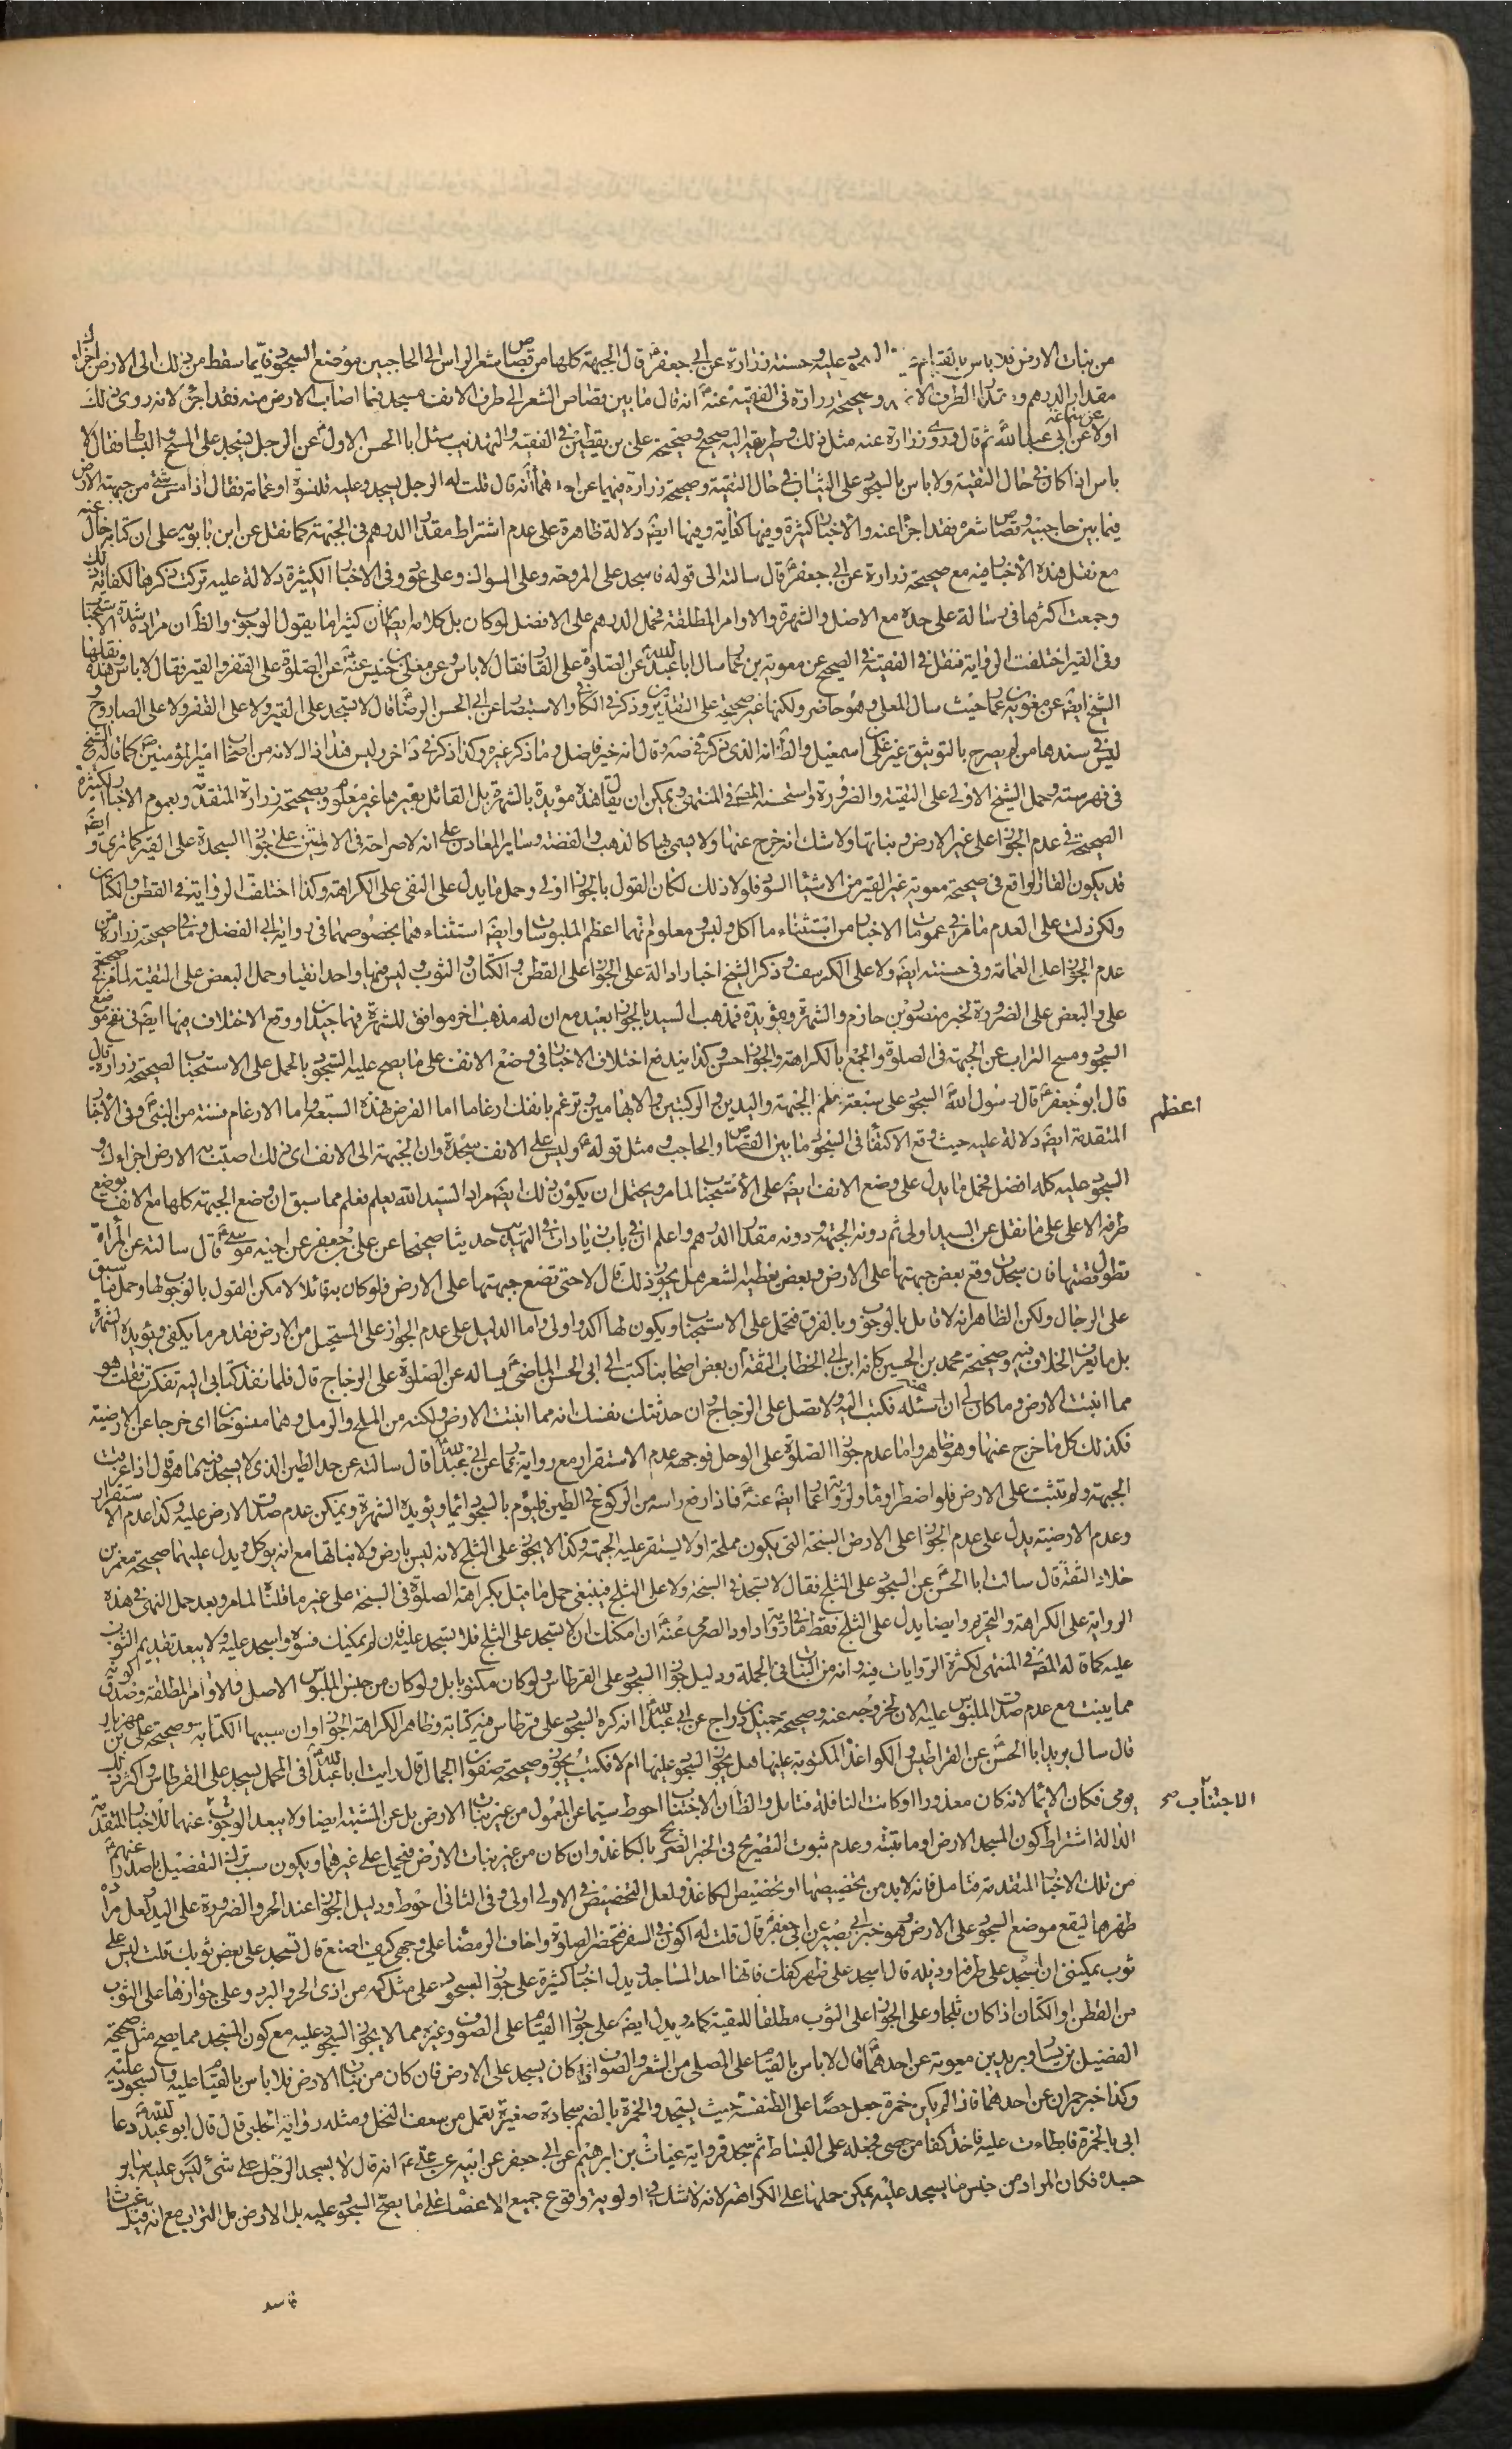 من نبات الارض فلا باس بالقيام عليه و حسنة زرارة عن ابي جعفر ع قال الجبهة كلها من قصاص شعر الراس الى الحاجبين موضع السجود فايما سقط من ذلك الى الارض اجزاك
مقدار الدرهم و مقدار الطرف الانملة و صحيحة زرارة في الفقيه عنه ع انه قال ما بين قصاص الشعر الى طرف الانف مسجد فما اصاب الارض منه فقد اجزاك لانه روى ذلك
اولا عن ابي عبد الله ثم قال و روى زرارة عنه مثل ذلك و طريقه اليه صحيح و صحيحة علي بن يقطين في الفقيه و التهذيب سئل ابا الحسن الاول ع عن الرجل يسجد على المسح و البساط فقال لا
باس اذا كان في حال التقية و لا باس بالسجود على الثياب في حال التقية و صحيحة زرارة فيهما عن احدهما ع انه قال قلت له الرجل يسجد و عليه قلنسوة او عمامة فقال اذا مس شئ من جبهته الارض
فيما بين حاجبيه و قصاص شعره فقد اجزأ عنه و الاخبار كثيرة و فيها كفاية و فيها ايضا دلالة ظاهرة على عدم اشتراط مقدار الدرهم في الجبهة كما نقل عن ابن بابويه على ان كتابه خال عنه
مع نقل هذه الاخبار فيه مع صحيحة زرارة عن ابي جعفر ع قال سالته الى قوله فاسجد على المروحة و على السواك و على عود و في الاخبار الكثيرة دلالة عليه تركت ذكرها لكفاية ذلك
و جمعت اكثرها في رسالة على حدة مع الاصل و الشهرة و الاوامر المطلقة فحمل الدرهم على الافضل لو كان بل كلامه ايضا فان كثيرا ما يقول الوجوب و الظ ان مراده شدة الاستحباب
و في القير اختلفت الرواية فنقل في الفقيه في الصحيح عن معوية بن عمار سال ابا عبد الله عن الصلوة على القار فقال لا باس و عن معلى بن خنيس عنه ع عن الصلوة على القفر و القير فقال لا باس و نقل هذه
الشيخ ايضا عن معوية بن عمار حيث سال المعلى و هو حاضر و لكنها غير صحيحة على التقديرين و ذكر في الكافي و الاستبصار عن ابي الحسن الرضا ع قال لا تسجد على القير و لا على القفر و لا على الصاروج
ليس في سندهما من لم يصرح بالتوثيق غير علي بن اسمعيل و الظ انه الذي ذكر في صه و قال انه خير فاضل و ما ذكر غيره و كذا ذكر في د اخر و ليس هذا ذاك لانه من اصحاب امير المؤمنين ع كما قاله الشيخ
في فهرسته و حمل الشيخ الاولى على التقية و الضرورة و استحسنه المص في المنتهى و يمكن ان يقال هذه مؤيدة بالشهرة بل القائل بغيرها غير معلوم و بصحيحة زرارة المتقدمة و بعموم الاخبار الكثيرة
الصحيحة في عدم الجواز على غير الارض و نباتها و لا شك انه خرج عنها و لا يسمى بها كالذهب و الفضة و سائر المعادن على انه لا صراحة في الاولتين على جواز السجدة على القير كما ترى و ايضا
قد يكون القار الواقع في صحيحة معوية غير القير من الاشياء السود فلولا ذلك لكان القول بالجواز اولى و حمل ما يدل على النفي على الكراهة و كذا اختلفت الرواية في القطن و الكتان
و لكن دلت على العدم ما مر في عموم الاخبار من استثناء ما اكل و لبس و معلوم انهما اعظم الملبوسات و ايضا استثناء هما بخصوصهما في رواية ابي الفضل و في صحيحة زرارة من
عدم الجواز على العمامة و في حسنته ايضا و لا على الكرسف و ذكر الشيخ اخبارا دالة على الجواز على القطن و الكتان و الثوب و ليس فيها واحد انقيا و حمل البعض على التقية لما مر في صحيحة
علي و البعض على الضرورة لخبر منصور بن حازم و الشهرة مؤيدة فمذهب السيد بالجواز بعيد مع ان له مذهب اخر موافق للشهرة فهما جيدا و وقع الاختلاف فيها ايضا في نفخ موضع
السجود و مسح التراب عن الجبهة في الصلوة و الجمع بالكراهة و الجواز احسن و كذا يندفع اختلاف الاخبار في وضع الانف على ما يصح عليه السجود بالحمل على الاستحباب لصحيحة زرارة قال
قال ابو جعفر ع قال رسول الله السجود على سبعة اعظم الجبهة و اليدين و الركبتين و الابهامين و ترغم بانفك ارغاما اما الفرض فهذه السبعة و اما الارغام فسنة من النبي ص و في الاخبار
المتقدمة ايضا دلالة عليه حيث وقع الاكتفاء في السجود ما بين القصاص و الحاجب و مثل قوله ع و ليس على الانف سجدة و ان الجبهة الى الانف اي ذلك اصبت به الارض اجزاك و
السجود عليه كله افضل فحمل ما يدل على وضع الانف ايضا على الاستحباب لما مر و يحتمل ان يكون ذلك ايضا مراد السيد الله يعلم فعلم مما سبق ان وضع الجبهة كلها مع الانف بوضع
طرفه الاعلى على ما نقل عن السيد اولى ثم دونه الجبهة و دونه مقدار الدرهم و اعلم ان في باب زيادات في التهذيب حديثا صحيحا عن علي بن جعفر عن اخيه موسى ع قال سالته عن المرأة
تطول قصتها فان سجدت وقع بعض جبهتها على الارض و بعض يغطيه الشعر هل يجوز ذلك قال لا حتى تضع جبهتها على الارض فلو كان به قائلا لامكن القول بالوجوب لها و حمل ما سبق
على الرجال و لكن الظاهر انه لا قايل بالوجوب و بالفرق فتحمل على الاستحباب و يكون لها اكد و اولى و اما الدليل على عدم الجواز على المستحيل من الارض فقد مر ما يكفي و يؤيده الشهرة
بل ما يعرف الخلاف فيه و صحيحة محمد بن الحسين كانه ابن ابي الخطاب الثقة ان بعض اصحابنا كتب الى ابي الحسن الماضي ع يساله عن الصلوة على الزجاج قال فلما نفذ كتابي اليه تفكرت فقلت هو
مما انبتت الارض و ما كان لي ان اسئله عنه فكتب اليه لا تصل على الزجاج و ان حدثتك نفسك انه مما انبتت الارض و لكنه من الملح و الرمل و هما ممسوخان اي خرجا عن الارضية
فكذلك كل ما خرج عنها و هو ظاهر و اما عدم جواز الصلوة على الوحل فوجهه عدم الاستقرار مع رواية عمار عن ابي عبد الله ع قال سالته عن حد الطين الذي لا يسجد فيه ما هو قال اذا غرقت
الجبهة و لم تثبت على الارض فلو اضطر اومأ و لرواية عمار ايضا عنه ع فاذا رفع راسه من الركوع في الطين فليؤم بالسجود ايماء و يؤيده الشهرة و يمكن عدم صدق الارض عليه و كذا عدم الاستقرار
و عدم الارضية يدل على عدم الجواز على الارض السبخة التي يكون مملحة او لا يستقر عليه الجبهة و كذا لا يجوز على الثلج لانه ليس بارض و لا نباتها مع انه يوكل و يدل عليهما صحيحة معمر بن
خلاد الثقة قال سالت ابا الحسن ع عن السجود على الثلج فقال لا تسجد في السبخة و لا على الثلج فينبغي حمل ما قيل بكراهة الصلوة في السبخة على غير ما قلنا لما مر و بعد حمل النهي في هذه
الرواية على الكراهة و التحريم و ايضا يدل على الثلج فقط ما في رواية داود الصرمي عنه ع ان امكنك ان لا تسجد على الثلج فلا تسجد عليه فان لم يمكنك فسوه و اسجد عليه و لا يبعد تقديم الثوب
عليه كما قاله المص في المنتهى لكثرة الروايات فيه و انه من النبات في الجملة و دليل جواز السجود على القرطاس و لو كان مكتوبا بل و لو كان من جنس الملبوس الاصل و الاوامر المطلقة و صدق كونه
مما ينبت مع عدم صدق الملبوس عليه الان لخروجه عنه و صحيحة جميل بن دراج عن ابي عبد الله ع انه كره السجود على قرطاس فيه كتابة و ظاهر الكراهة الجواز و ان سببها الكتابة و صحيحة علي بن مهزيار
قال سال بريد ابا الحسن ع عن القراطيس و الكواغذ المكتوبة عليها هل يجوز السجود عليها ام لا فكتب يجوز و صحيحة صفوان الجمال قال رايت ابا عبد الله ع في المحمل يسجد على القرطاس و اكثر ذلك
يومى فكان الايماء لانه كان معذورا او كانت النافلة فتامل و الظ ان الاجتناب احوط سيما عن المعمول من غير نبات الارض بل عن المشتبه ايضا و لا يبعد الوجوب عنهما للاخبار المتقدمة
الدالة اشتراط كون المسجد الارض او ما تنبته و عدم ثبوت التصريح في الخبر الصريح بالكاغذ و ان كان من غير نبات الارض فيحمل على غيرهما و يكون سبب ترك التفصيل ما صدر عنهم ع
من تلك الاخبار المتقدمة فتامل فانه لا بد من تخصيصها او تخصيص الكاغذ و لعل التخصيص في الاولى اولى و في الثاني احوط و دليل الجواز عند الحر و الضرورة على اليد لعل مراده
ظهرها ليقع موضع السجود على الارض و هو خبر ابي بصير عن ابي جعفر ع قال قلت له اكون في السفر فتحضر الصلوة و اخاف الرمضاء على وجهي كيف اصنع قال تسجد على بعض ثوبك قلت ليس علي
ثوب يمكنني ان اسجد على طرفه و ذيله قال اسجد على ظهر كفك فانها احد المساجد و يدل اخبار كثيرة على جواز السجود على مثل كمه من اذى الحر و البرد و على جوازها على الثوب
من القطن او الكتان اذا كان ثلجا و على الجواز على الثوب مطلقا للتقية كما مر و يدل ايضا على جواز القيام على الصوف و غيره مما لا يجوز السجود عليه مع كون المسجد مما يصح مثل صحيحة
الفضيل بن يسار و بريد بن معوية عن احدهما ع قال لا باس بالقيام على المصلى من الشعر و الصوف اذا كان يسجد على الارض فان كان من نبات الارض فلا باس بالقيام عليه و السجود عليه
و كذا خبر حمران عن احدهما فاذا لم يكن خمرة جعل حصا على الطنفسة حيث يسجد و الخمرة بالضم سجادة صغيرة تعمل من سعف النخل و مثله رواية الحلبي قال قال ابو عبد الله ع دعا
ابي بالخمرة فابطاءت عليه فاخذ كفا من حصى فجعله على البساط ثم سجد فرواية غياث بن ابرهيم عن ابي جعفر عن ابيه عن علي ع انه قال لا يسجد الرجل على شئ ليس عليه ساير
جسده فكان المراد من جنس ما يسجد عليه يمكن حملها على الكراهة لانه لا شك في اولوية وقوع جميع الاعضاء على ما يصح السجود عليه بل الارض بل التراب مع انه قيل غياث
اعظم
الاجتناب صح
فاسد